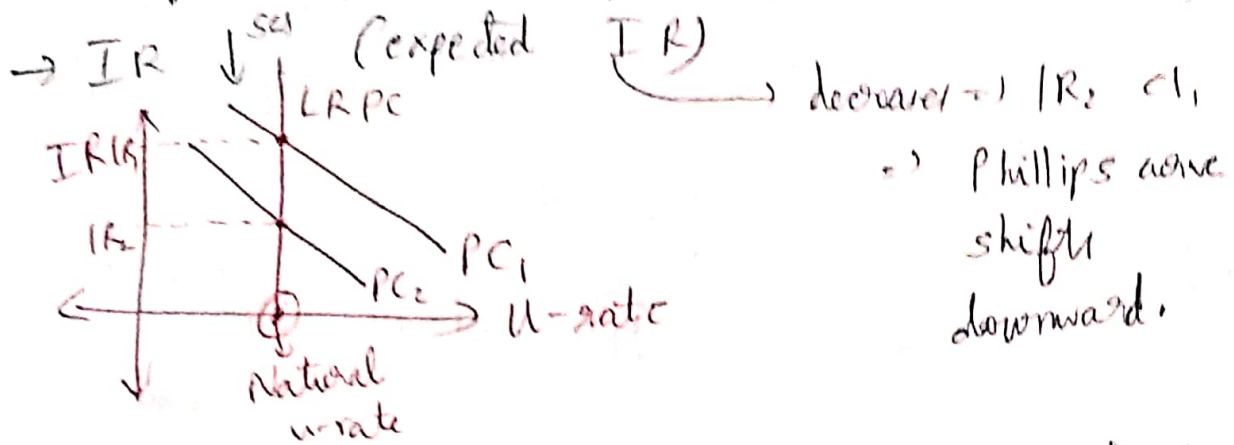 → IR ↓ (expected IR)
LRPC
decreases ⇒ IR₂
IR₁
⇒ Phillips curve
shifts
downward.
IR₂
PC₁
PC₂
U-rate
Natural
u-rate